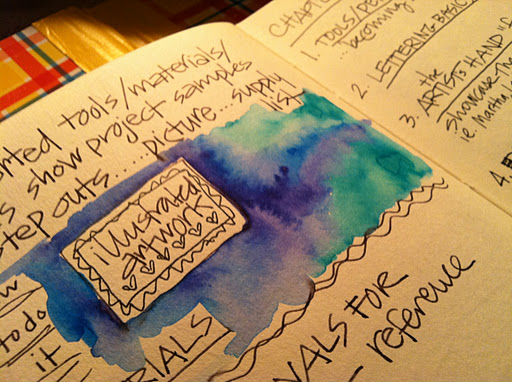 tools/materials/
show project samples
step outs....picture...supply
list
illustrated
artwork
todo
it
FOR
reference
CHAPTE
1. TOOLS/
...becoming
2. LETTERING BASIC
the
3. ARTIST'S HAND
Showcase
ie. Martha,
4.